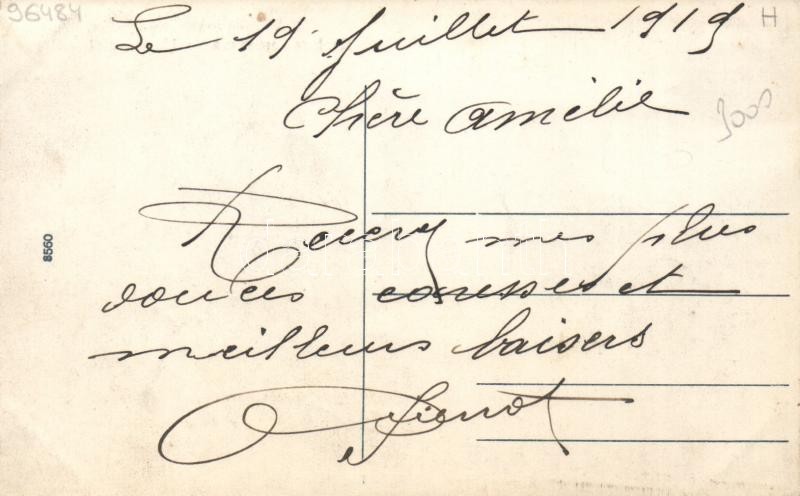 96484
H
Le 19 Juillet 1919
Chère Amélie
3000
Recevez mes plus
douces caresses et
meilleurs baisers
8560